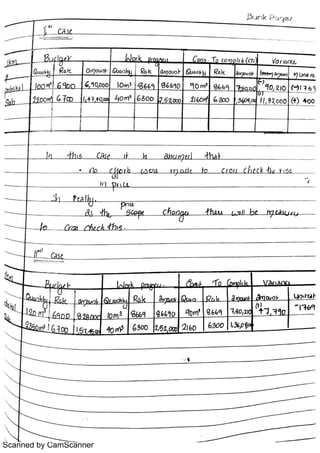 Bunk Prayer
Ist Case
Item Budget Work progress Cons. To complete (CTC) Variance
Quantity Rate amount Quantity Rate amount Quantity Rate amount
pedestal 100m³ 6900 6,90,000 10m³ 8669 86690 90m³ 8669 (-) 90,210 (-) 1769
Slab 2200m³ 6700 1,47,40,000 40m³ 6300 2,52,000 2160m³ 6300 (+) 11,32,000 (+) 400
In this case it is assumed that
• no efforts was made to cross check the rise
in price
In reality,
price
as the scope changes there will be measures
to cross check this.
IInd Case
Item Budget Work progress Cost To Complete Variance
Quantity Rate amount Quantity Rate amount Rate amount amount
120 m³ 6900 828000 10m³ 8669 86690 90m³ 8669 7,80,210 (+)
Slab 6700 40m³ 6300 2,52,000 2160 6300
Scanned by CamScanner